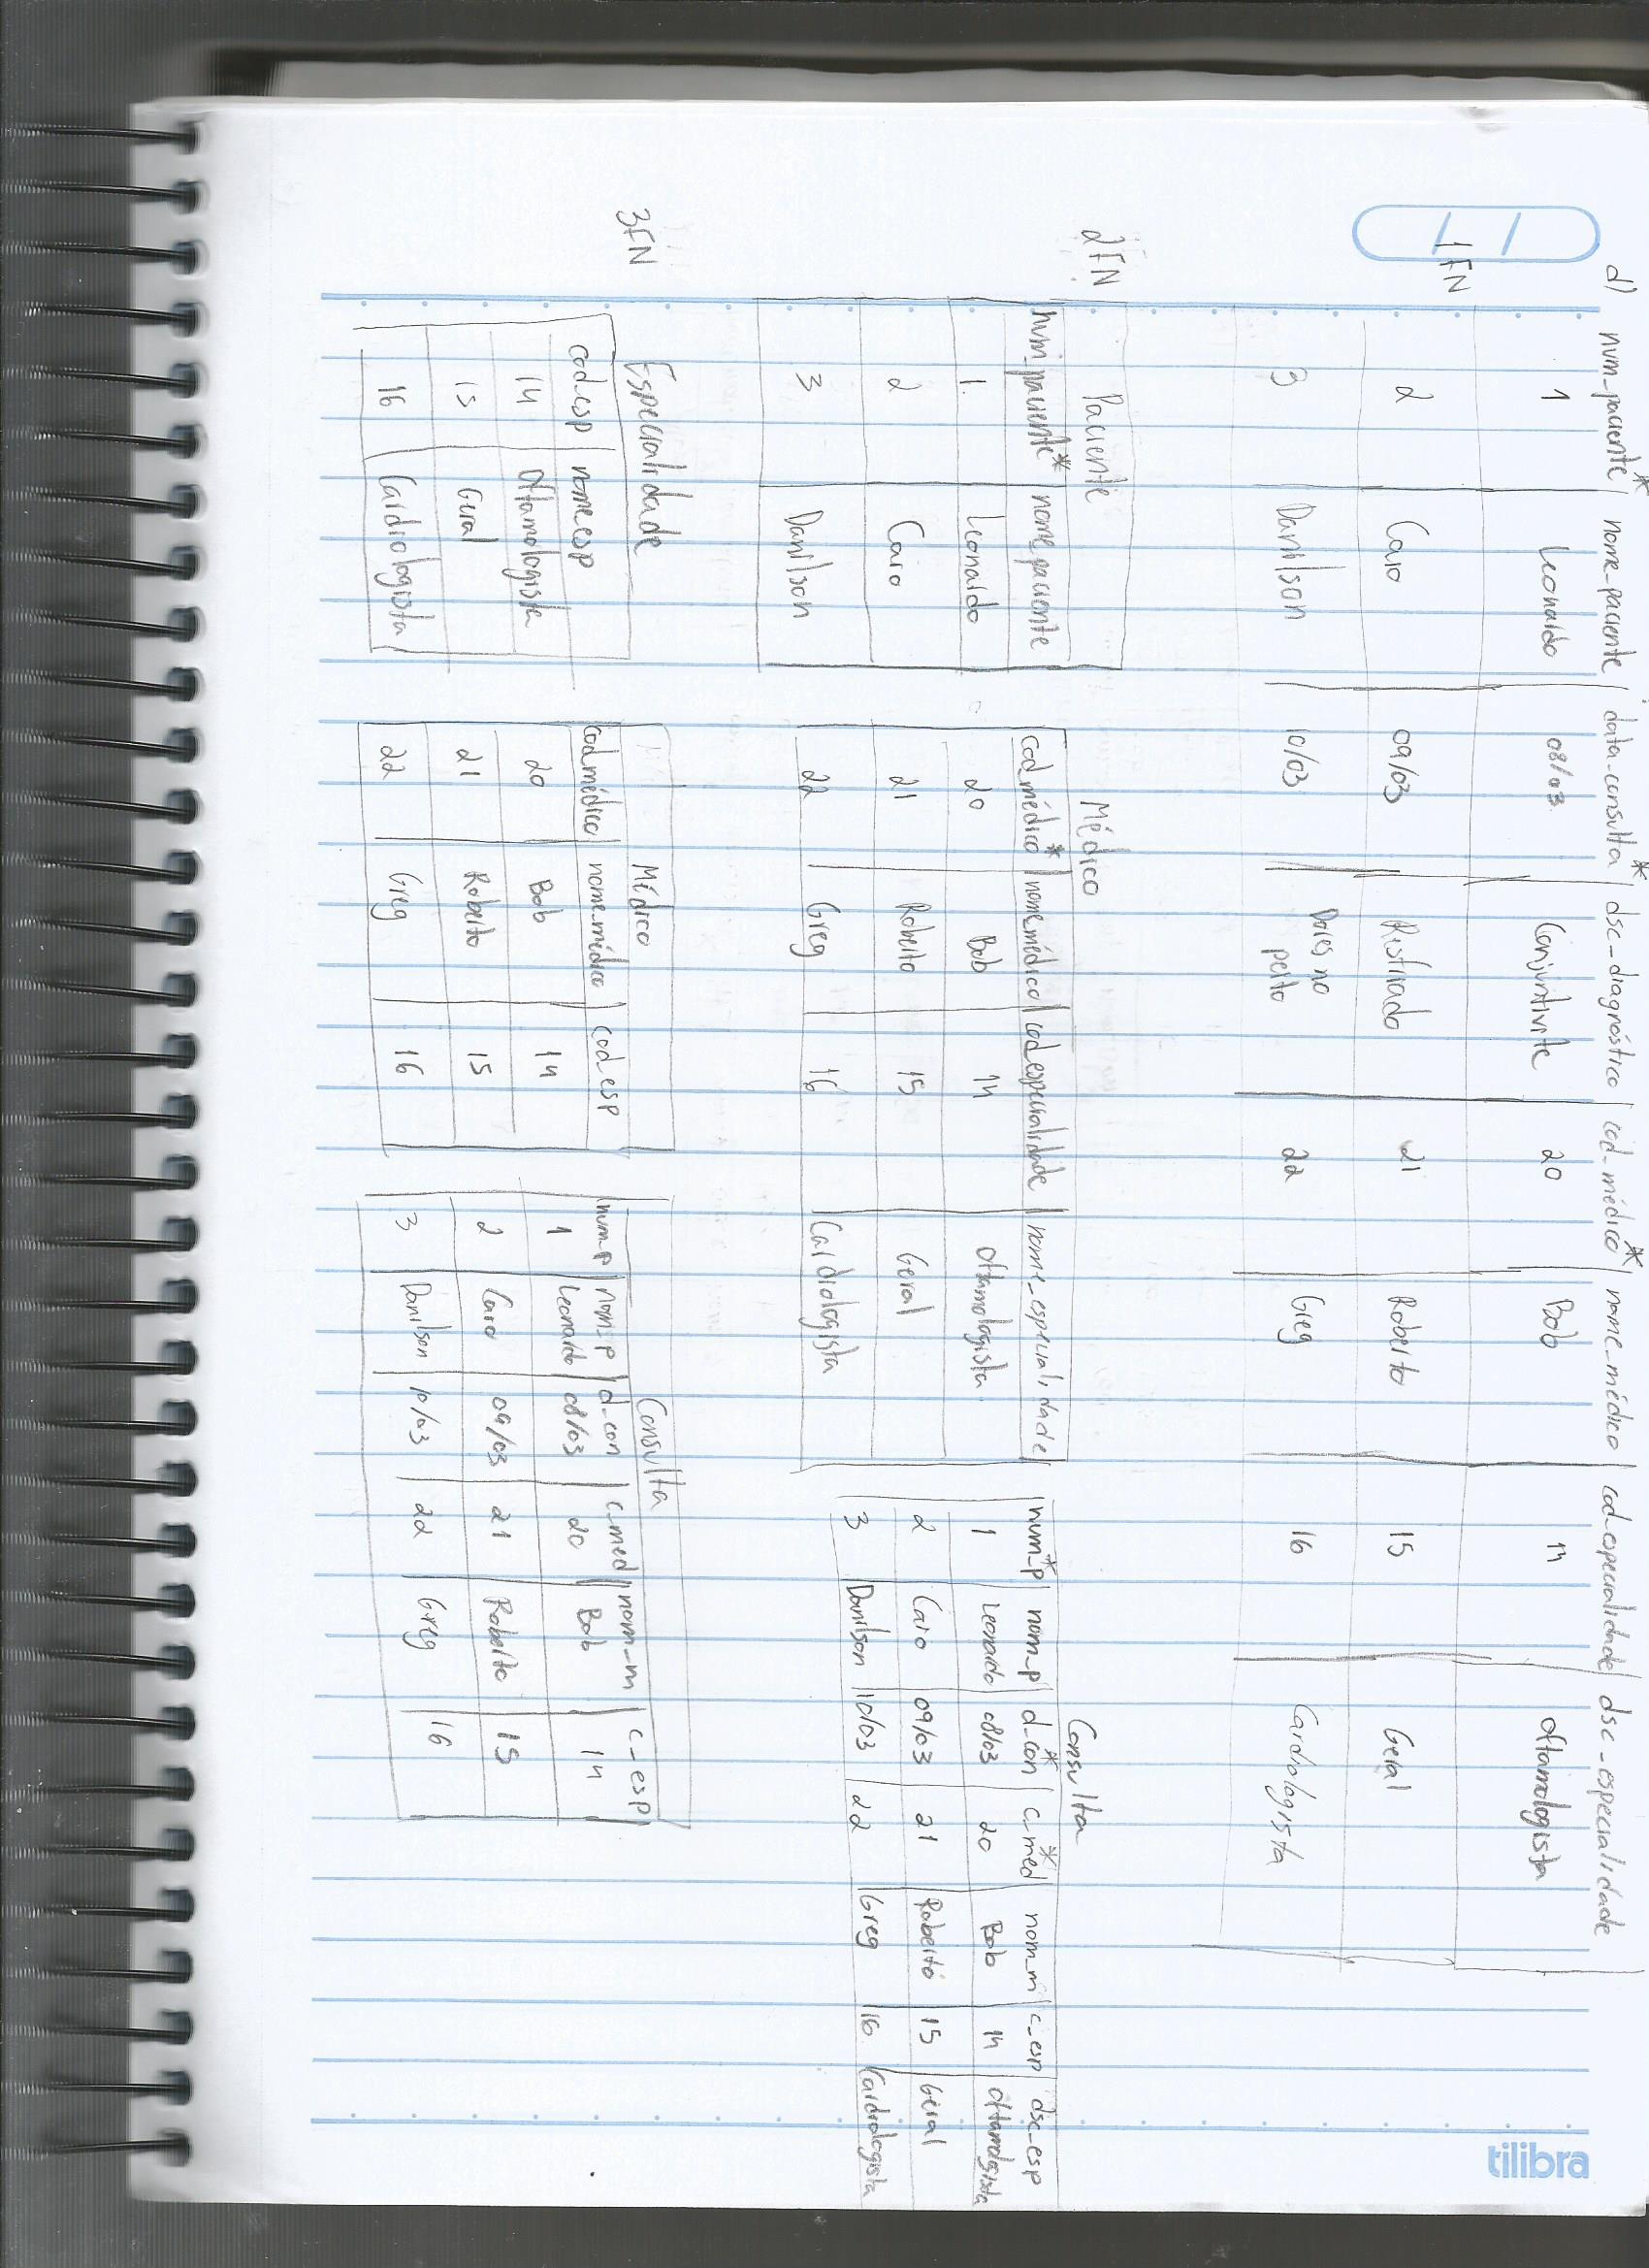 d) num_paciente* | nome_paciente | data_consulta* | dsc_diagnóstico | cod_médico* | nome_médico | cod_especialidade | dsc_especialidade
1FN
1 Leonardo 08/03 Conjuntivite 20 Bob 14 oftamologista
2 Caio 09/03 Resfriado 21 Roberto 15 Geral
3 Danilson 10/03 Dores no peito 22 Greg 16 Cardiologista
2FN
Paciente
num_paciente* | nome paciente
1 Leonardo
2 Caio
3 Danilson
Médico
cod_médico* | nome médico | cod especialidade | nome_especialidade
20 Bob 14 oftamologista
21 Roberto 15 Geral
22 Greg 16 Cardiologista
Consulta
num_p* | nom_p | d_con* | c_med* | nom_m | c_esp | dsc_esp
1 Leonardo 08/03 20 Bob 14 oftamologista
2 Caio 09/03 21 Roberto 15 Geral
3 Danilson 10/03 22 Greg 16 Cardiologista
3FN
Especialidade
cod_esp | nome esp
14 Oftamologista
15 Geral
16 Cardiologista
Médico
cod médico | nome médico | cod_esp
20 Bob 14
21 Roberto 15
22 Greg 16
Consulta
num_p | nom_p | d_con | c_med | nom_m | c_esp
1 Leonardo 08/03 20 Bob 14
2 Caio 09/03 21 Roberto 15
3 Danilson 10/03 22 Greg 16
tilibra